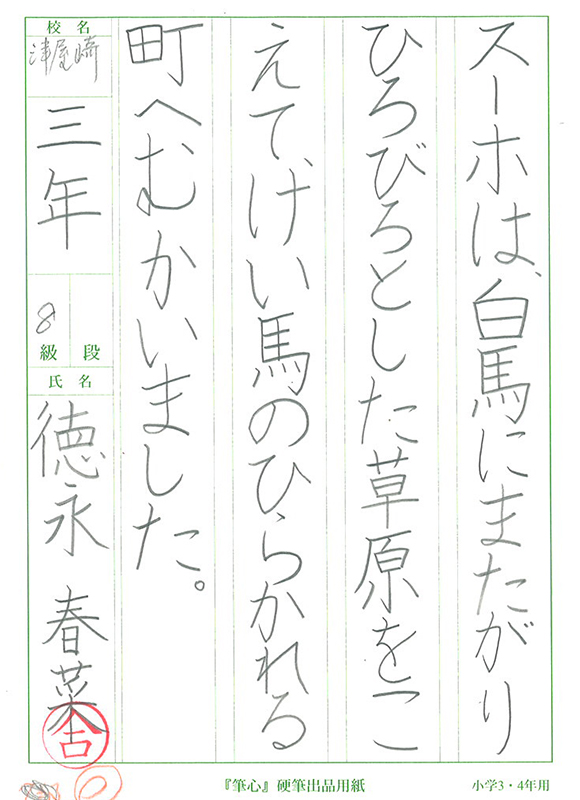 スーホは、白馬にまたがり
ひろびろとした草原をこ
えて、けい馬のひらかれる
町へむかいました。
校名
津屋崎
三年
8
級 段
氏名
徳永 春菜
占
『筆心』硬筆出品用紙
小学3・4年用